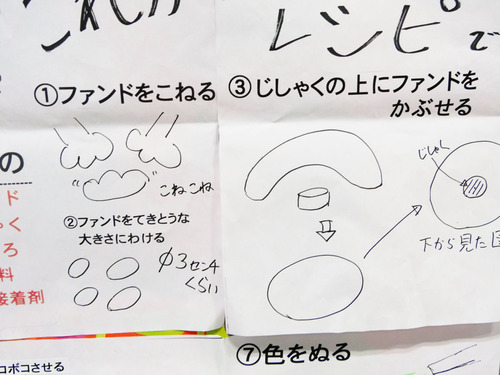 レシピで
①ファンドをこねる
こねこね
②ファンドをてきとうな
大きさにわける
φ3センチ
くらい
③じしゃくの上にファンドを
かぶせる
じしゃく
下から見た図
の
ド
く
ろ
料
接着剤
コボコさせる
⑦色をぬる